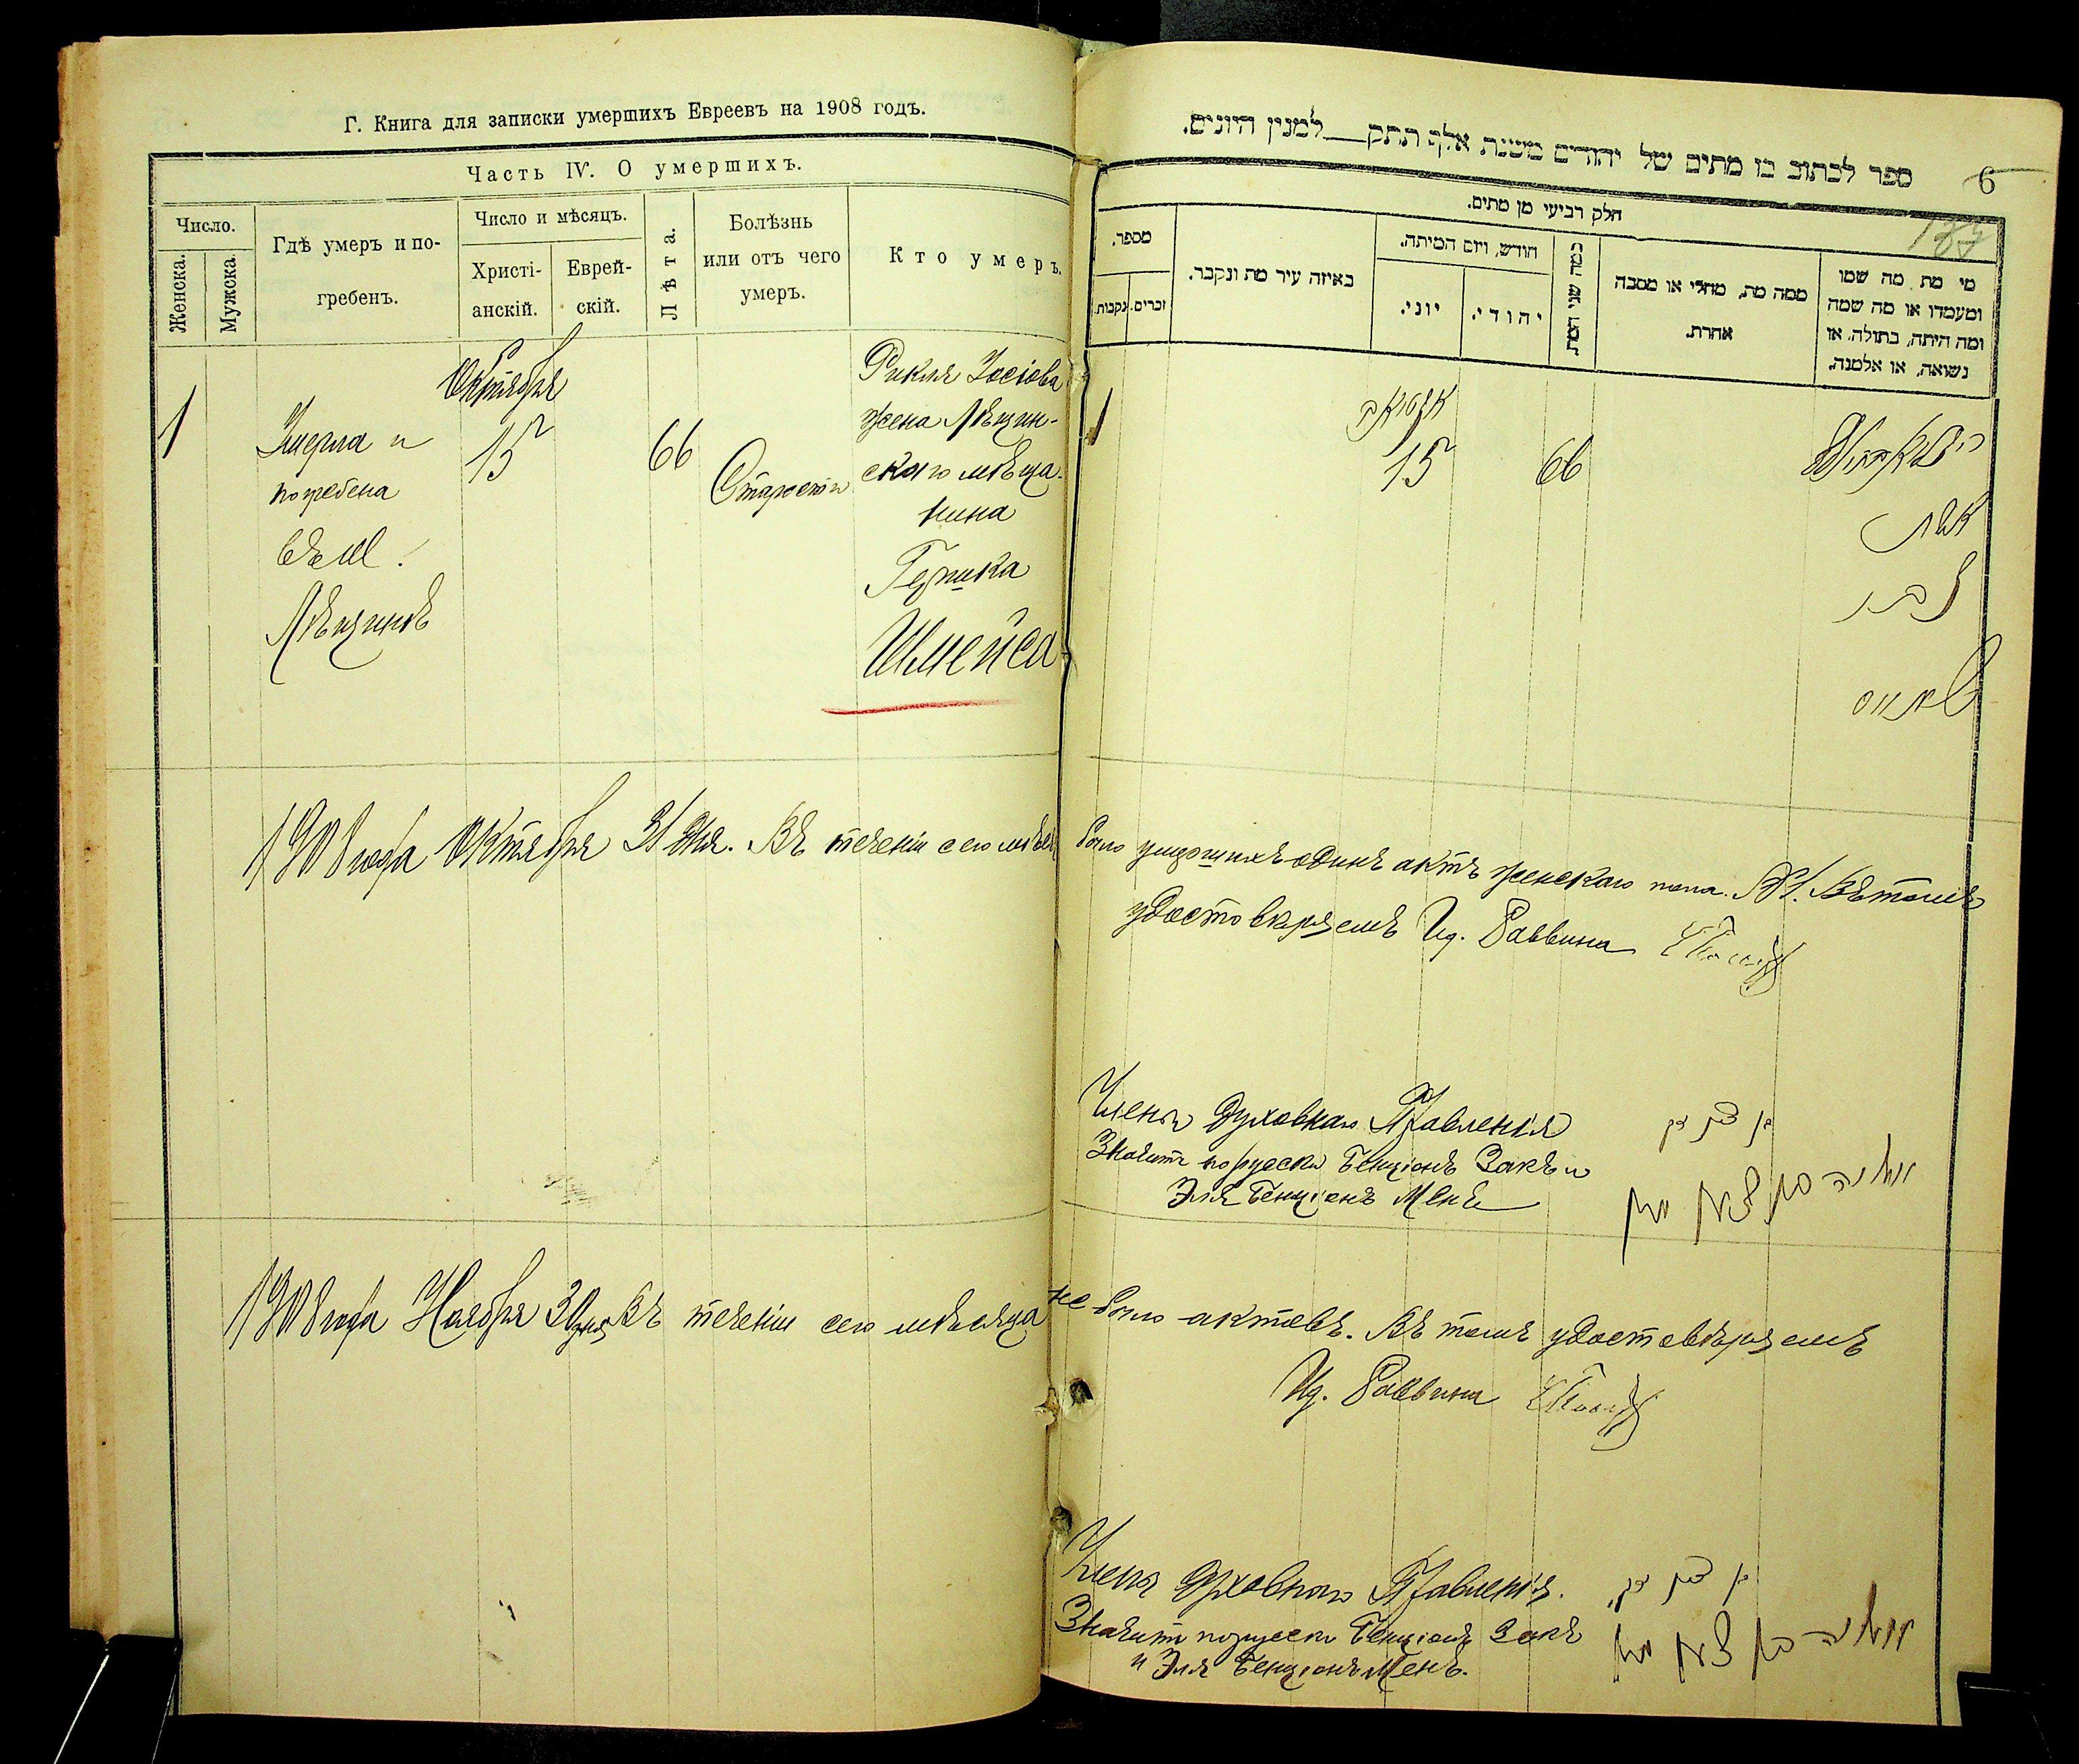 Г. Книга для записки умершихъ Евреевъ на 1908 годъ.
Часть IV. О умершихъ.
Число.
Женска.
Мужска.
Гдѣ умеръ и по-
гребенъ.
Число и мѣсяцъ.
Христі-
анскій.
Еврей-
скій.
Лѣта.
Болѣзнь
или отъ чего
умеръ.
Кто умеръ.
1
Умерла и
погребена
въ м.
Октября
15
66
Старости
Рикля Іосіова
жена
скаго мѣща-
нина
Шмейса
1908 года Октября 31 дня. Въ теченіи сего
1908 года Ноября 30 дня Въ теченіи сего мѣсяца
ספר לכתוב בו מתים של יהודים משנת אלף תתק למנין היונים.
6
חלק רביעי מן מתים.
מספר.
זכרים.
נקבות.
באיזה עיר מת ונקבר.
חודש, ויום המיתה.
יוני.
יהודי.
כמה שני המת
ממה מת, מחלי או מסבה
אחרת.
מי מת מה שמו
ומעמדו או מה שמה
ומה היתה, בתולה, או
נשואה, או אלמנה.
1
15
66
אשת
было умершихъ одинъ актъ женскаго пола. №1. Въ томъ
удостовѣряемъ Ид. Раввина
Члены Духовнаго Правленія
Значитъ по русски Бенціонъ Закъ и
Эля Бенціонъ Менъ
не было актовъ. Въ томъ удостовѣряемъ
Ид. Раввина
Члены Духовнаго Правленія.
Значитъ по русски Бенціонъ Закъ
и Эля Бенціонъ Менъ.